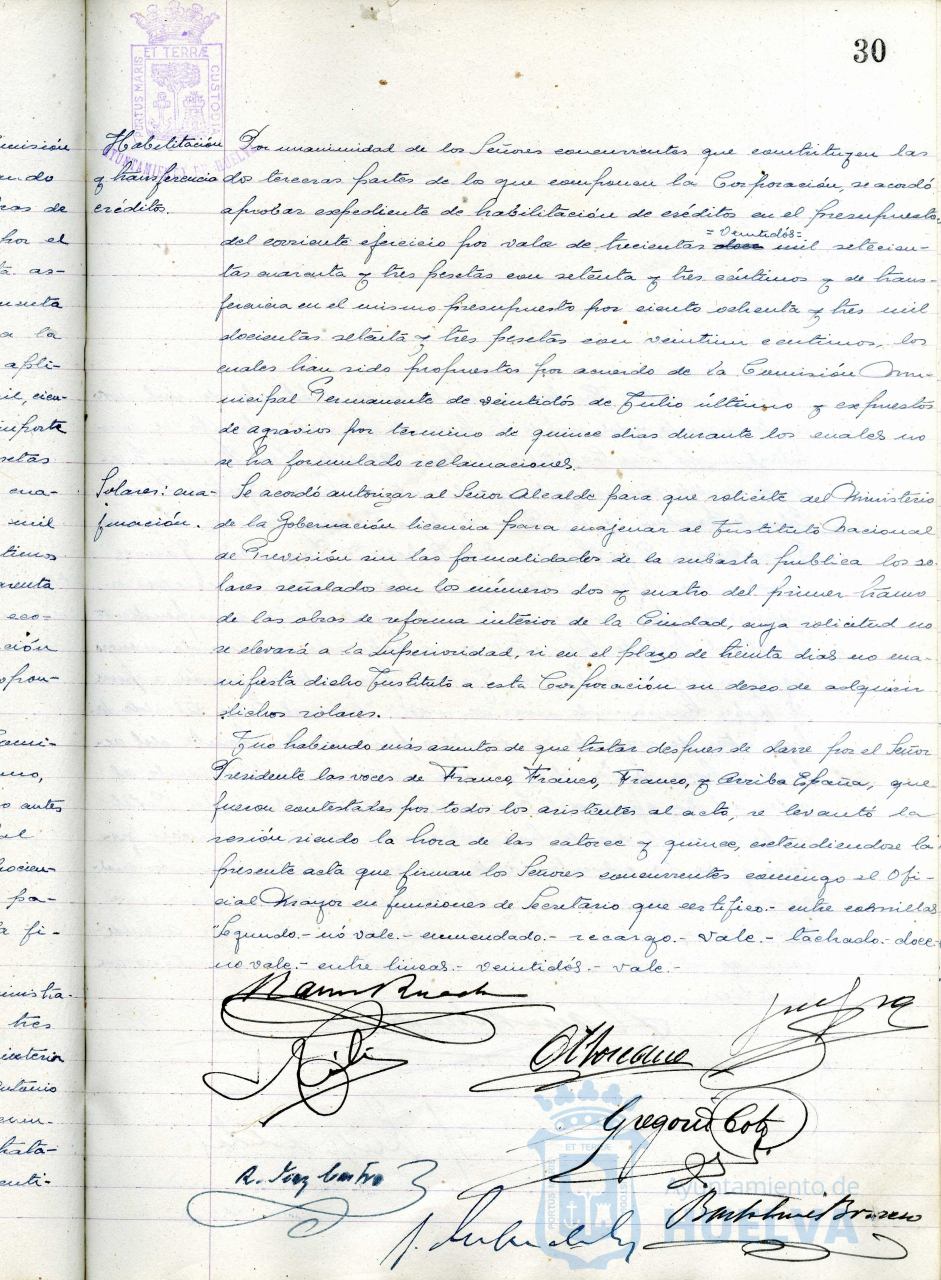 30
ET TERRÆ
PORTUS MARIS
CUSTODIA
AYUNTAMIENTO DE HUELVA
Habilitación
y transferencia
créditos.
Por unanimidad de los Señores concurrentes que constituyen las
dos terceras partes de lo que componen la Corporación, se acordó
aprobar expediente de habilitación de créditos en el presupuesto
= Veintidós =
del corriente ejercicio por valor de trecientas doce mil setecien-
tas cuarenta y tres pesetas con setenta y tres céntimos y de trans-
ferencia en el mismo presupuesto por ciento ochenta y tres mil
docientas setenta y tres pesetas con veintiun centimos, los
cuales han sido propuestos por acuerdo de la Comisión Mu-
nicipal Permanente de veintidós de Julio último y expuestos
de agravios por termino de quince dias durante los cuales no
se ha formulado reclamaciones.
Solares: ena-
jenación.
Se acordó autorizar al Señor Alcalde para que solicite del Ministerio
de la Gobernación licencia para enajenar al Instituto Nacional
de Previsión sin las formalidades de la subasta publica los so-
lares señalados con los números dos y cuatro del primer tramo
de las obras de reforma interior de la Ciudad, cuya solicitud no
se elevará a la Superioridad, si en el plazo de treinta dias no ma-
nifiesta dicho Instituto a esta Corporación su deseo de adquirir
dichos solares.
Y no habiendo más asuntos de que tratar despues de darse por el Señor
Presidente las voces de Franco, Franco, Franco, y Arriba España, que
fueron contestadas por todos los asistentes al acto, se levantó la
sesión siendo la hora de las catorce y quince, extendiendose la
presente acta que firman los Señores concurrentes conmigo el Ofi-
cial Mayor en funciones de Secretario que certifico.- entre comillas
"Segundo.- nó vale.- enmendado.- recargo.- Vale.- tachado.- doce
no vale.- entre lineas.- veintidós.- vale.-
Gregorio Coto
R. Diaz Castro
ET TERRÆ
PORTUS MARIS
CUSTODIA
Ayuntamiento de
HUELVA